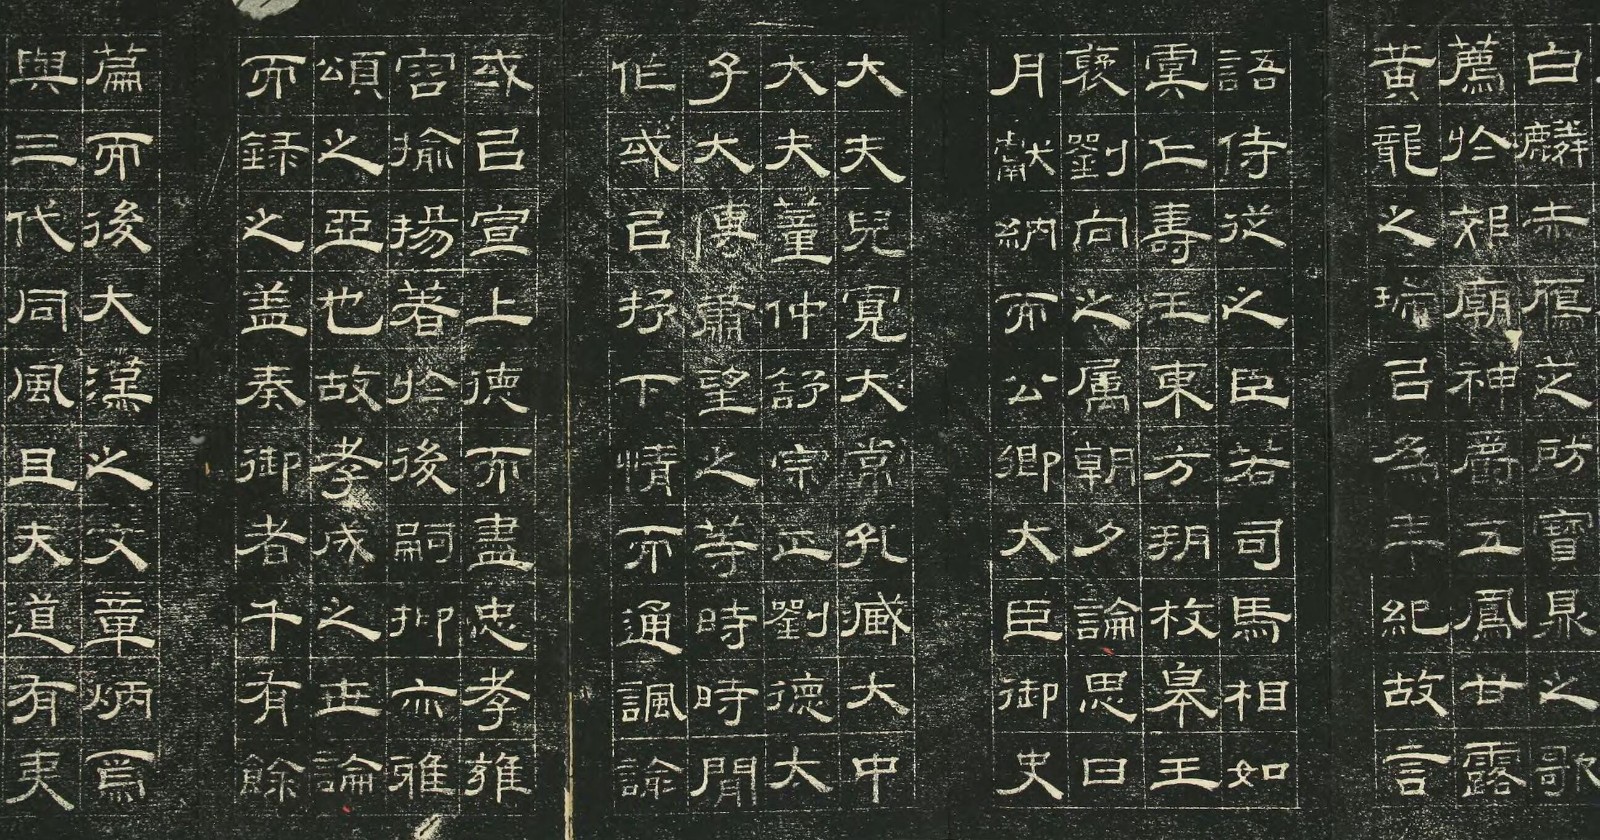 白麟赤鴈芝房寶鼎之歌
薦於郊廟神爵五鳳甘露
黄龍之瑞以為年紀故言
語侍從之臣若司馬相如
虞丘壽王東方朔枚皋王
褒劉向之属朝夕論思日
月獻納而公卿大臣御史
大夫兒寬大常孔臧大中
大夫董仲舒宗正劉德太
子大傅蕭望之等時時間
作或以抒下情而通諷諭
或以宣上德而盡忠孝雍
容揄揚著於後嗣抑亦雅
頌之亞也故孝成之世論
而録之盖奏御者千有餘
篇而後大漢之文章炳焉
與三代同風且夫道有夷